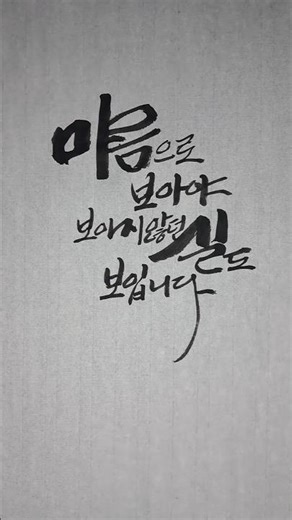 마음으로
보아야
보아지않던 실도
보입니다